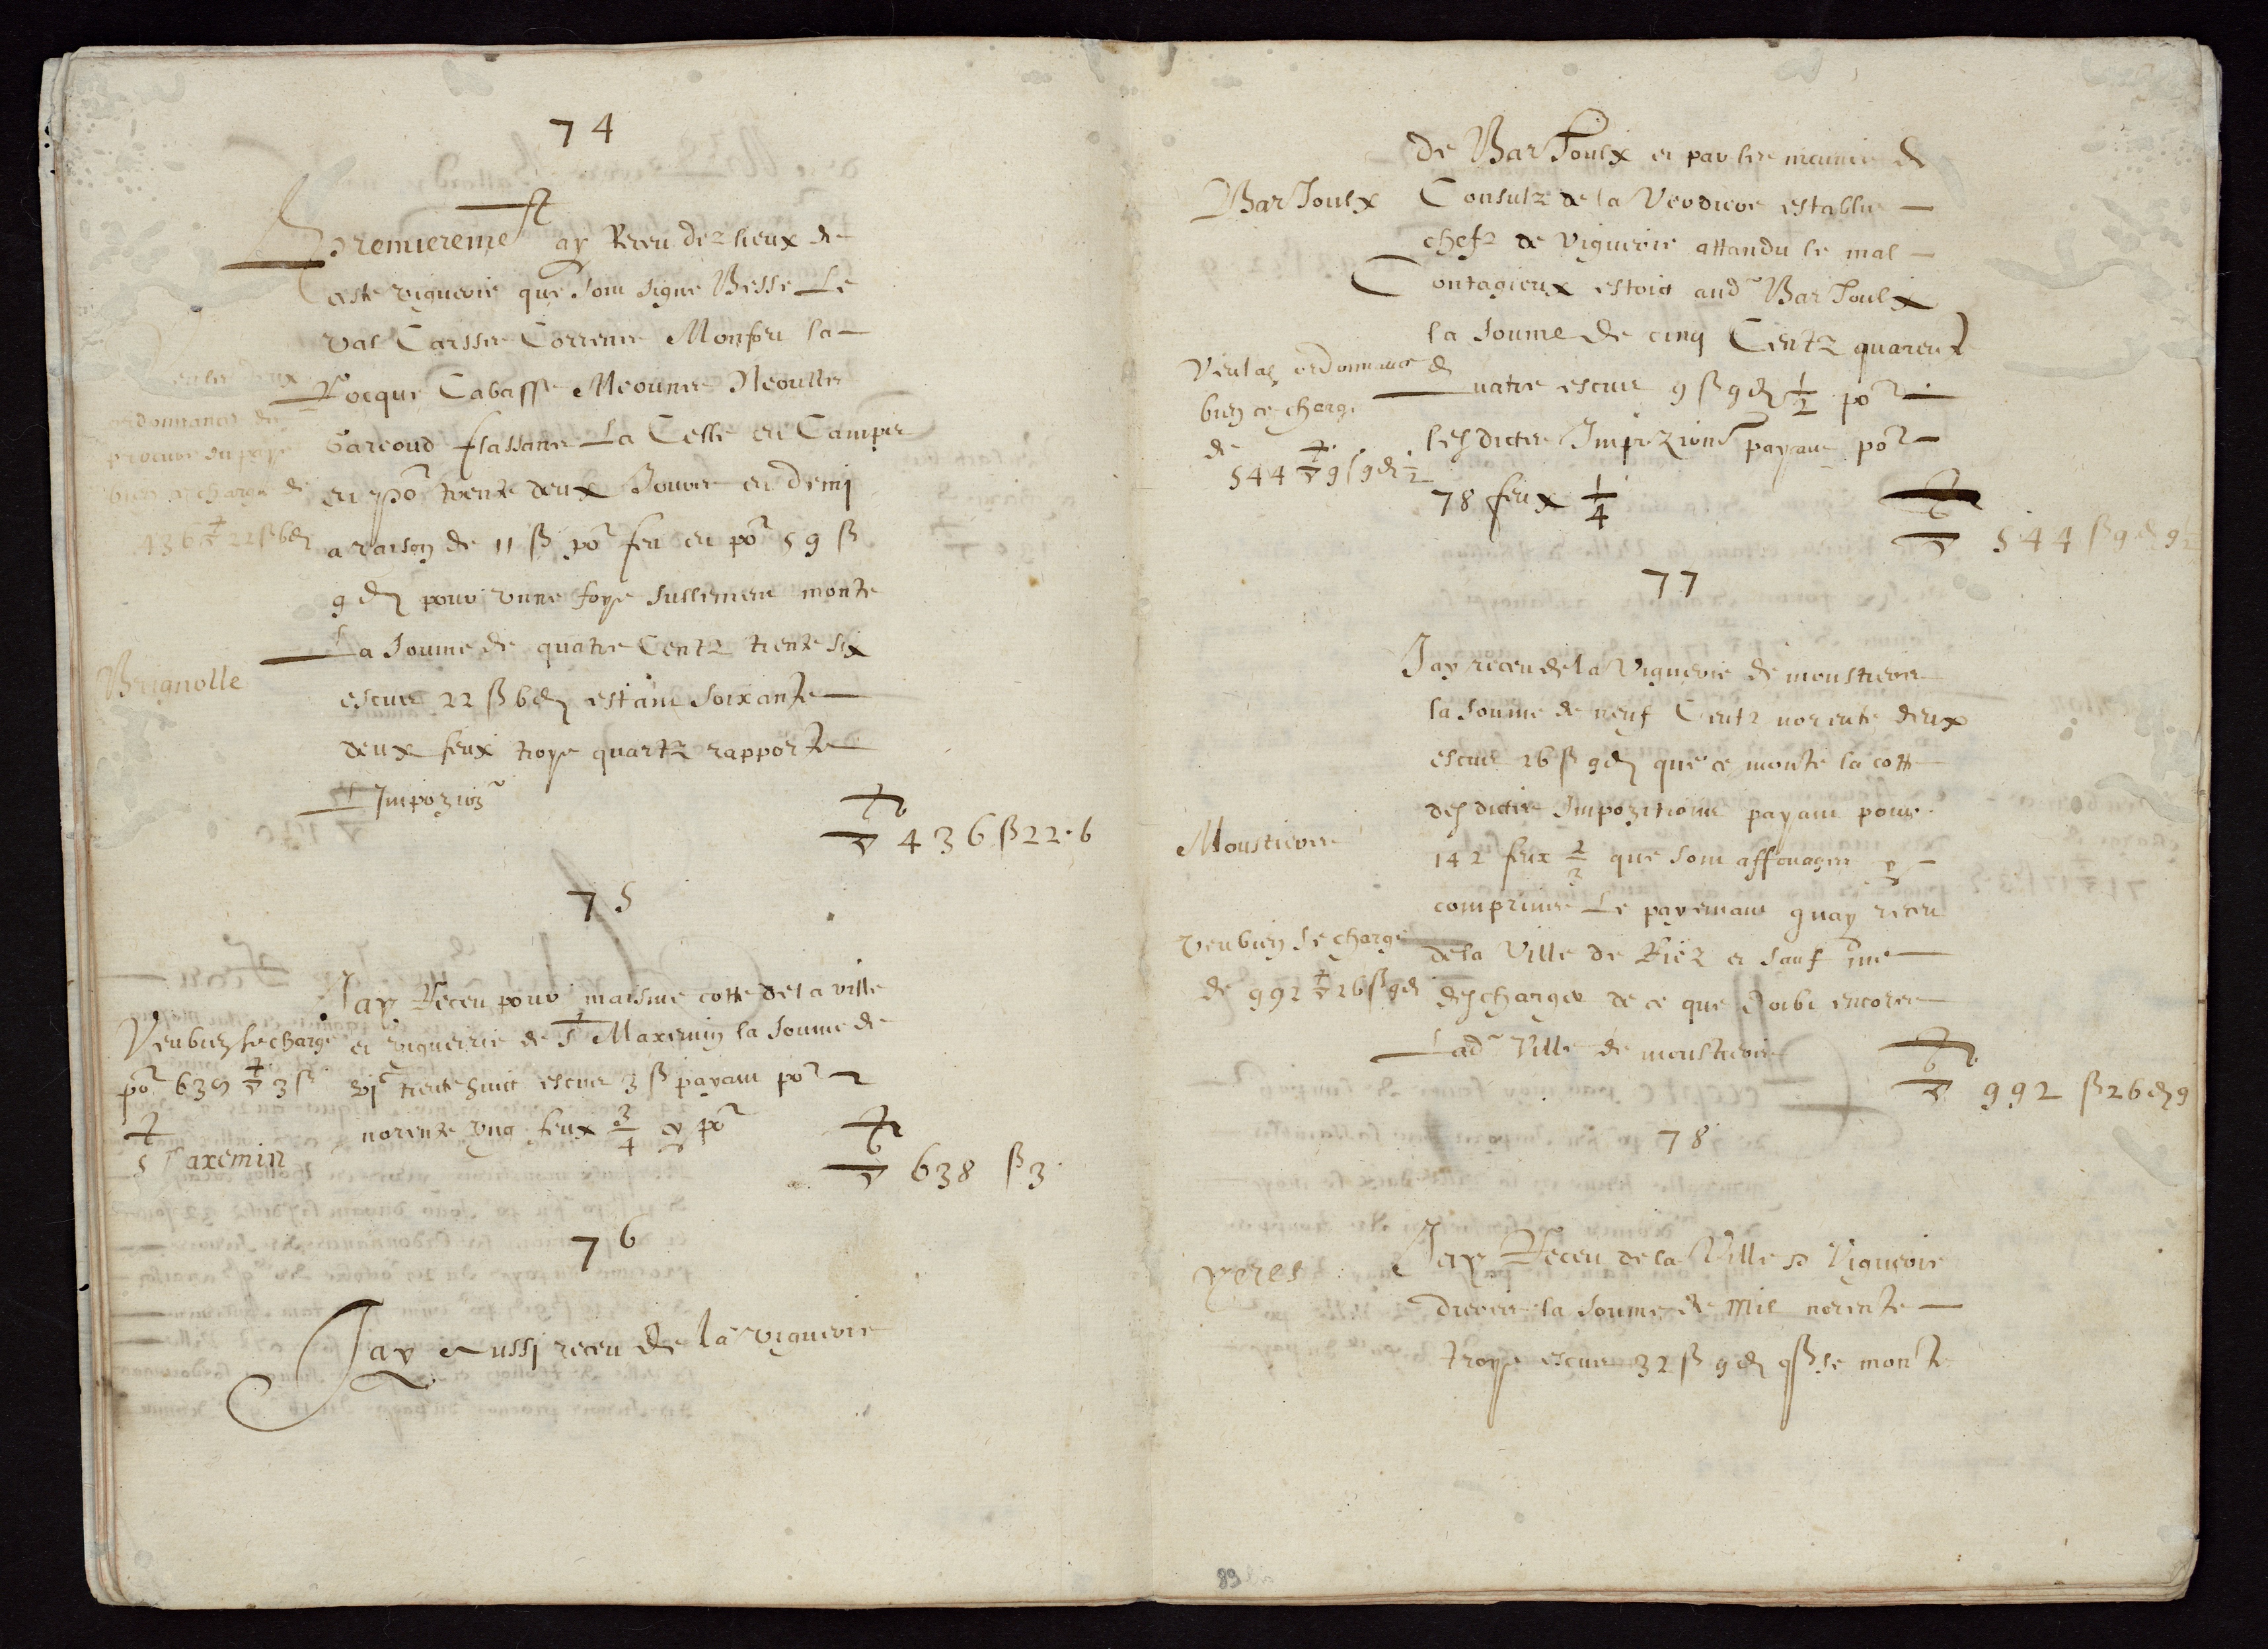 74
Premierement ay Receu dez lieux de
Ceste viguerie que sont signe Besse Le
Val Carsses Correns Monfort la
Rocque Cabasse Meounes Neoulles
Gareoud flassans La Celle et Camps
et po^r trente deux Jours et demj
a raison de 11 ß po^r feu et po^r 59 ß
9 d pour vune foys sullement monte
La soume de quatre Centz trente six
escus 22 ß 6 d estant soixante
deux feux troys quartz rapporte
Impozion
436 ß 22 6
ordonnances des
procures du pays
bien charge de
436 22 ß 6 d
Brignolle
75
Jay Receu pour maisme cotte de la ville
et viguerie de S^t Maxemin la soume de
vj^c trente huict escus 3 ß payant po^r
nonente vng feux 3/4 cy po^r
638 ß 3
Veu bien se charge
po^r 639 3 ß
S^t Maxemin
76
Jay aussi receu de la viguerie
de Barjoulx et par les mains de
Consulz de la Verdiere establie
chefz de viguerie attandu le mal
Contagieux estoict aud^t Barjoulx
la soume de cinq Centz quarente
quatre escus 9 ß 9 d 1/2 po^r
lesdictes Impozions payant po^r
78 feux 1/4
544 ß 9 d 9 1/2
Barjoulx
Veu las ordonnance de
bien ce charge
de
544 9 ß 9 d 1/2
77
Jay receu de la Viguerie de moustiers
la soume de neuf Centz nonente deux
escus 26 ß 9 d que ce monte la cotte
desdictes Impozitions payant pour
142 feux 2/3 que sont affouages y
comprins Le payemant quay receu
de la Ville de Riez et sauf me
descharger de ce que doibt encores
Lad^e Ville de moustiers
992 ß 26 d 9
Moustiers
Veu bien se charge
de 992 26 ß 9 d
78
Jay Receu de la Ville et Viguerie
dieres la soume de mil nonente
troys escus 32 ß 9 d que se monte
yeres
89